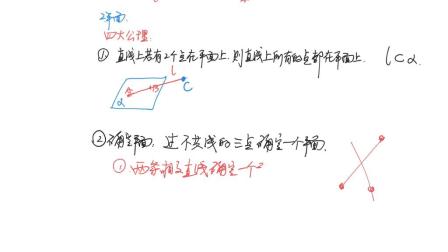 2平面.
四大公理.
① 直线上若有2个点在平面上,则直线上所有的点都在平面上. l⊂α.
l
A B C
α
② 确定平面. 过不共线的三点确定一个平面.
① 两条相交直线确定一个